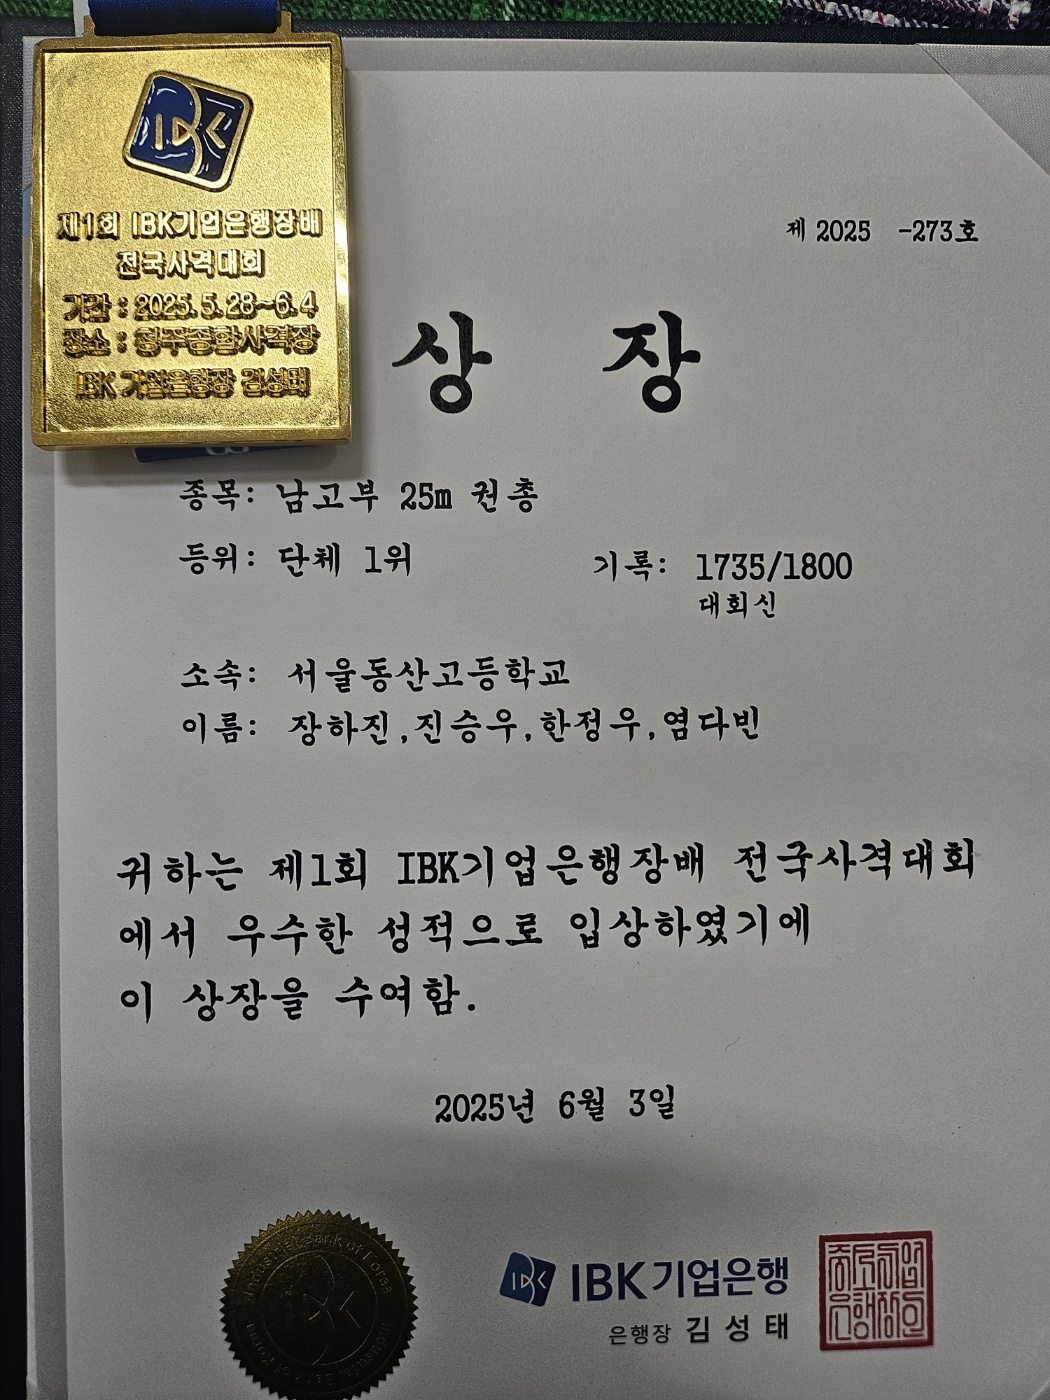 IBK
제1회 IBK기업은행장배
전국사격대회
기간 : 2025.5.28~6.4
장소 : 청주종합사격장
IBK 기업은행장 김성태
제 2025 -273호
상 장
종목: 남고부 25m 권총
등위: 단체 1위
기록: 1735/1800
대회신
소속: 서울동산고등학교
이름: 장하진,진승우,한정우,염다빈
귀하는 제1회 IBK기업은행장배 전국사격대회
에서 우수한 성적으로 입상하였기에
이 상장을 수여함.
2025년 6월 3일
Industrial Bank of Korea
IBK
IBK기업은행
은행장 김성태